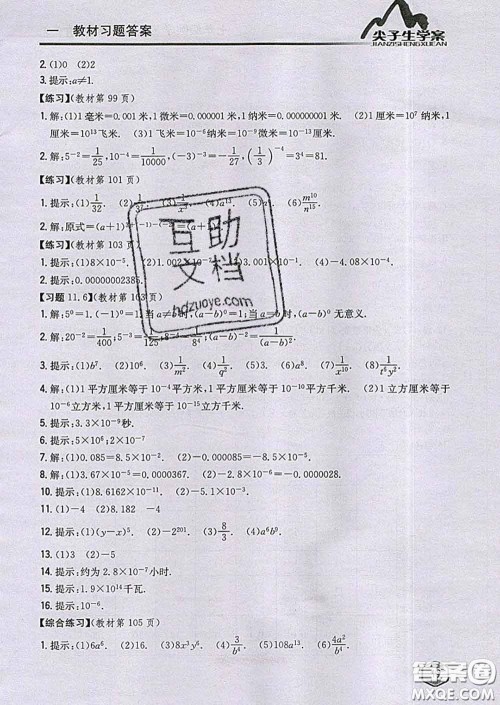 一 教材习题答案
尖子生学案
JIANZISHENGXUEAN
2. (1)0 (2)2
3. 提示：a≠1.
【练习】(教材第 99 页)
1. 解：(1)1毫米=0.001米，1微米=0.000001米，1纳米=0.000000001米. (2)1米=10⁷纳米，1
厘米=10¹³飞米. (3)1飞米=10⁻⁶纳米=10⁻⁹微米=10⁻¹²毫米.
2. 解：5⁻²=1/25，10⁻⁴=1/10000，(-3)⁻³=-1/27，(1/3)⁻⁴=3⁴=81.
【练习】(教材第 101 页)
1. 提示：(1)1/32. (2)1/37. (3)1/x⁹. (4)a¹³. (5) (6)m¹⁰/n¹⁵.
2. 解：原式=(a+1)
【练习】(教材第 103 页)
1. 提示：(1)98×10⁻⁵. (2)1.002× (3)-10⁻⁴. (4)-4.08×10⁻⁴.
2. 提示：0.00000002385.
【习题 11.6】(教材第 103 页)
1. 解：5⁰=1.(-1)⁰=1.当 时，(a-b)⁰=1；当 a=b 时，(a-b)⁰ 无意义.
2. 解：20⁻²=1/400，5⁻³=1/125，8⁻⁴=1/8⁴，(a-b)⁻²=1/(a-b)².
3. 提示：(1)b⁷. (2)10⁶. (3)1/m². (4)1/q². (5)x³. (6)7. (7)1/x¹⁰. (8)1/(t⁶y²).
4. 解：(1)1平方厘米等于10⁻⁴平方米，1平方厘米等于10⁻¹⁰平方千米. (2)1立方厘米等于
10⁻⁶立方米，1立方厘米等于10⁻¹⁵立方千米.
5. 提示：3.3×10⁻⁹秒.
6. 提示：5×10⁶；2×10⁻⁷
7. 解：(1)0.085=8.5×10⁻². (2)-0.0085=-8.5×10⁻³.
8. 解：(1)3.67×10⁻⁵=0.0000367. (2)-2.8×10⁻⁶=-0.0000028.
10. 提示：(1)8.6162×10⁻¹¹. (2)-5.1×10⁻³.
11. (1)-4 (2)8.182 -4
12. 提示：(1)(y-x)⁵. (2)-2²⁰¹. (3)8/3. (4)a⁶b⁶.
13. (1)3 (2)-5
14. 提示：约为2.8×10⁻⁷小时.
15. 提示：1.9×10¹⁴千瓦.
16. 提示：10⁻⁶.
【综合练习】(教材第 105 页)
1. 提示：(1)6a⁶. (2)16. (3)8x³y⁶. (4)3/b⁴. (5)108a¹³. (6)4a²/b⁴.
互助
文档
hdzuoye.com
答案圈
MXQE.COM